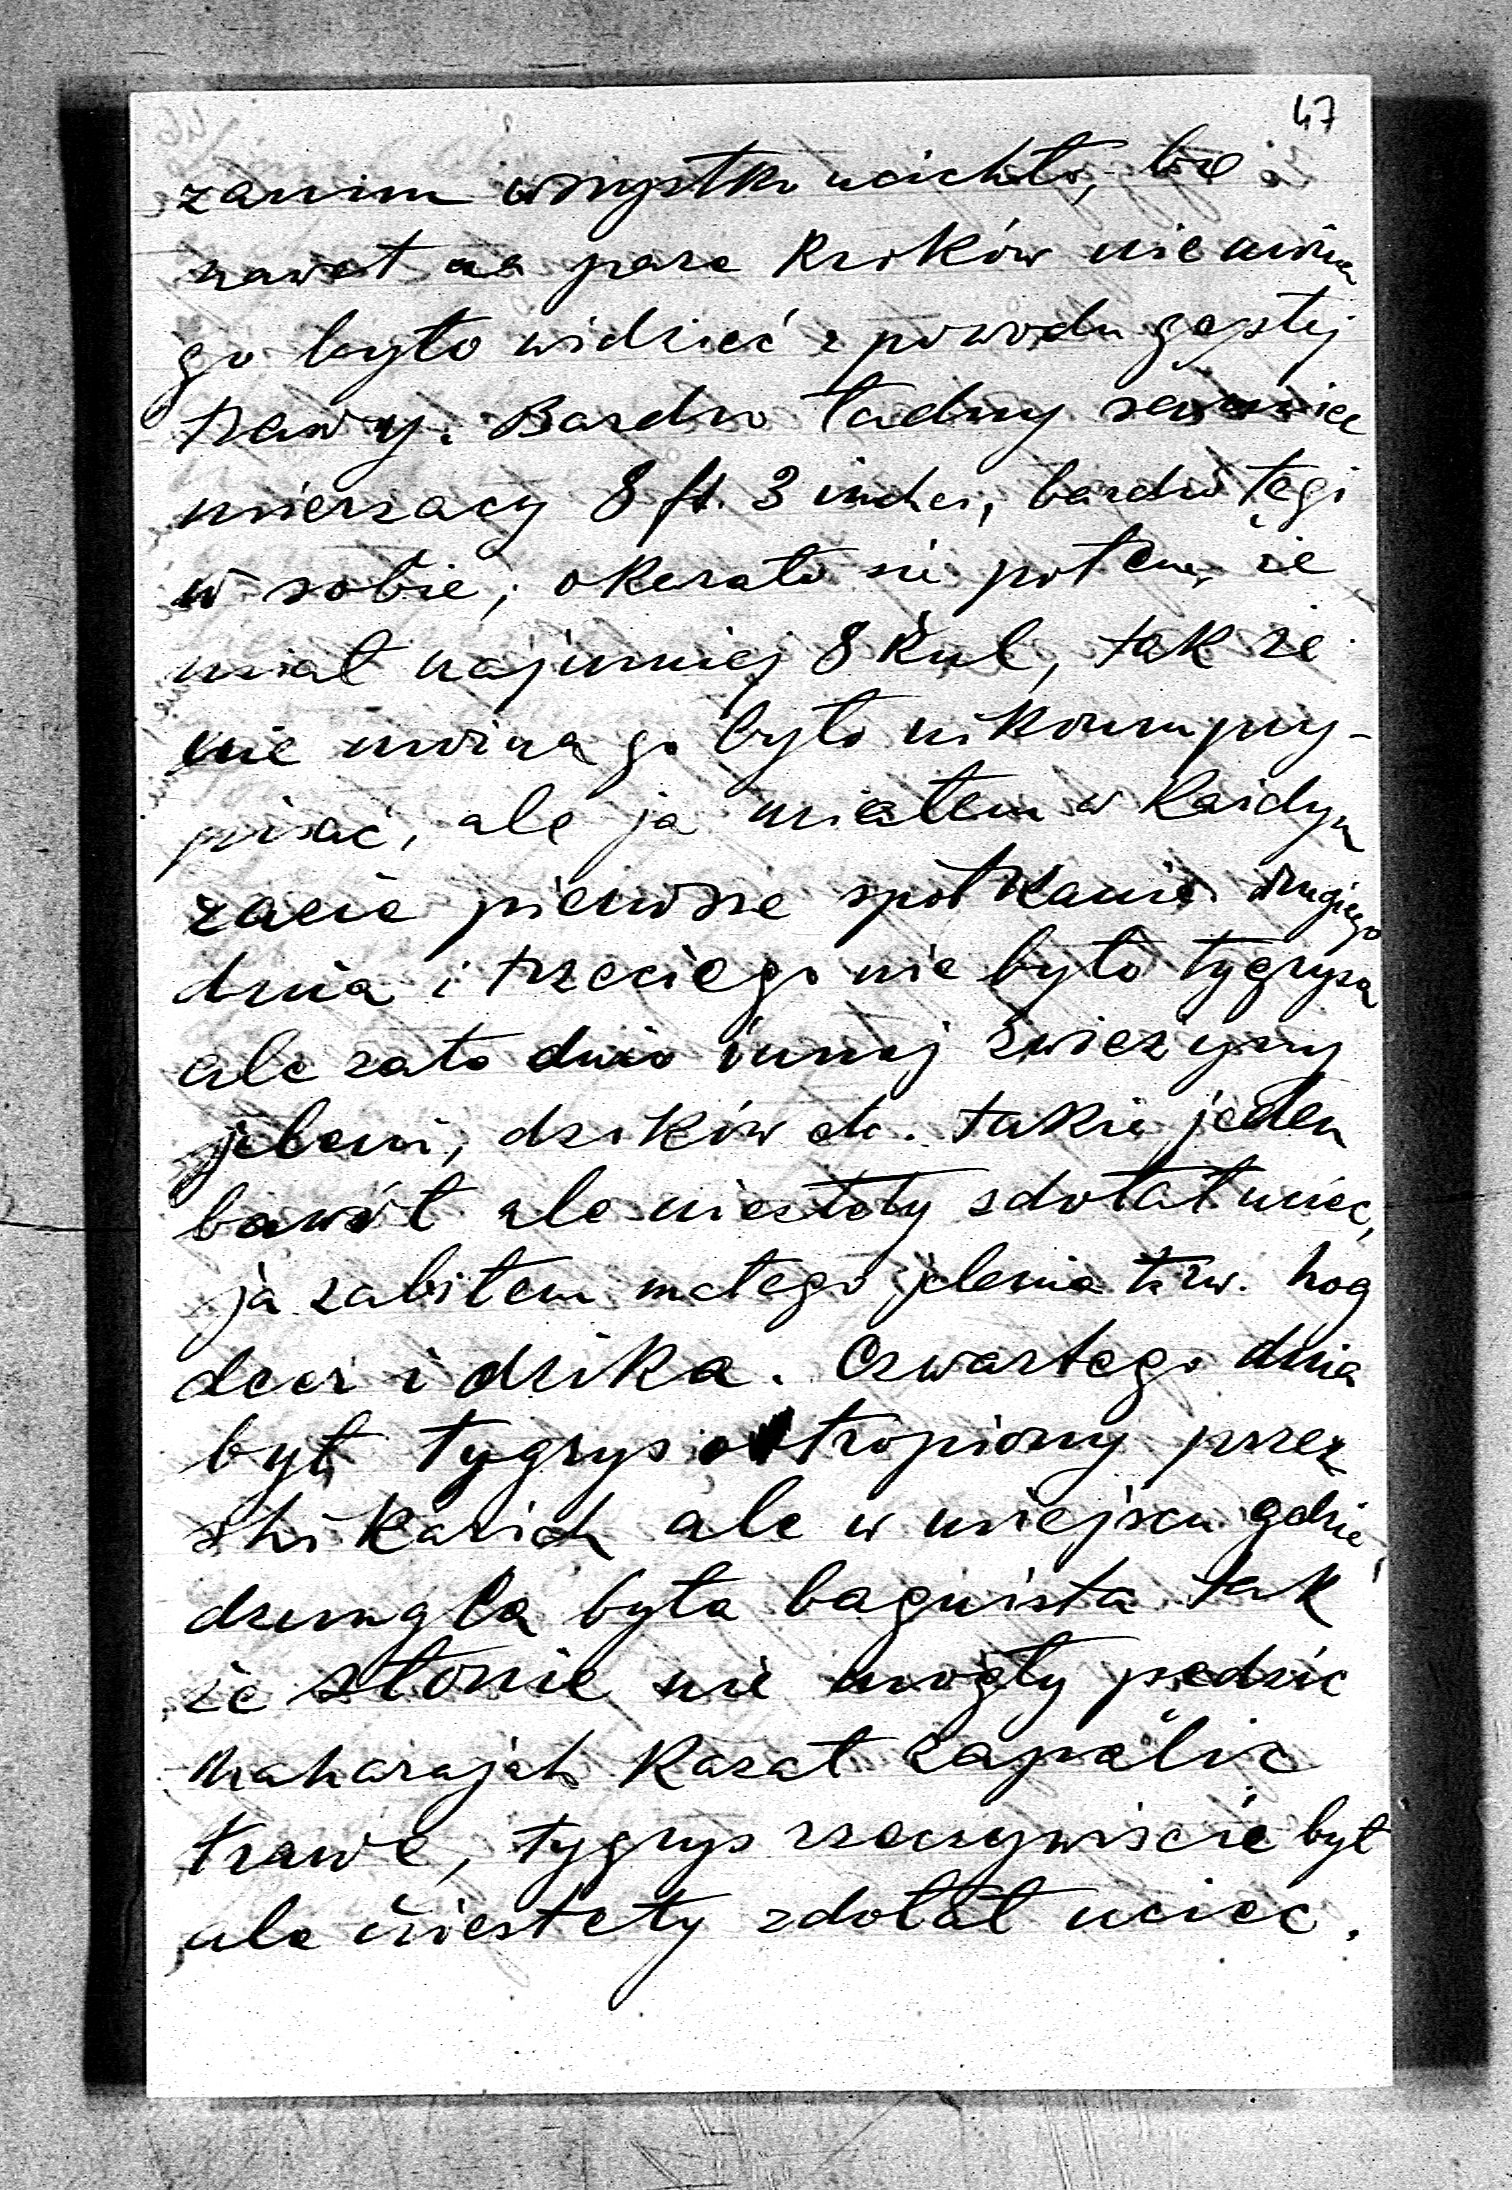 47
zanim wszystko ucichło, bo
nawet na parę kroków nie można
go było widzieć z powodu gęstej
trawy. Bardzo ładny samiec
mierzący 8 ft. 3 inches, bardzo tęgi
w sobie, okazało się potem, że
miał najmniej 8 kul, tak że
nie można go było nikomu przy-
pisać, ale ja miałem w każdym
razie pierwsze spotkanie. Drugiego
dnia i trzeciego nie było tygrysa
ale zato dużo innej zwierzyny
jeleni, dzików etc. także jeden
bawół ale niestety zdołał uciec,
ja zabiłem małego jelenia tzw. hog
deer i dzika. Czwartego dnia
był tygrys otropiony przez
shikarich ale w miejscu gdzie
dżungla była bagnista tak
że słonie nie mogły pędzić
maharajah kazał zapalić
trawę, tygrys rzeczywiście był
ale niestety zdołał uciec.